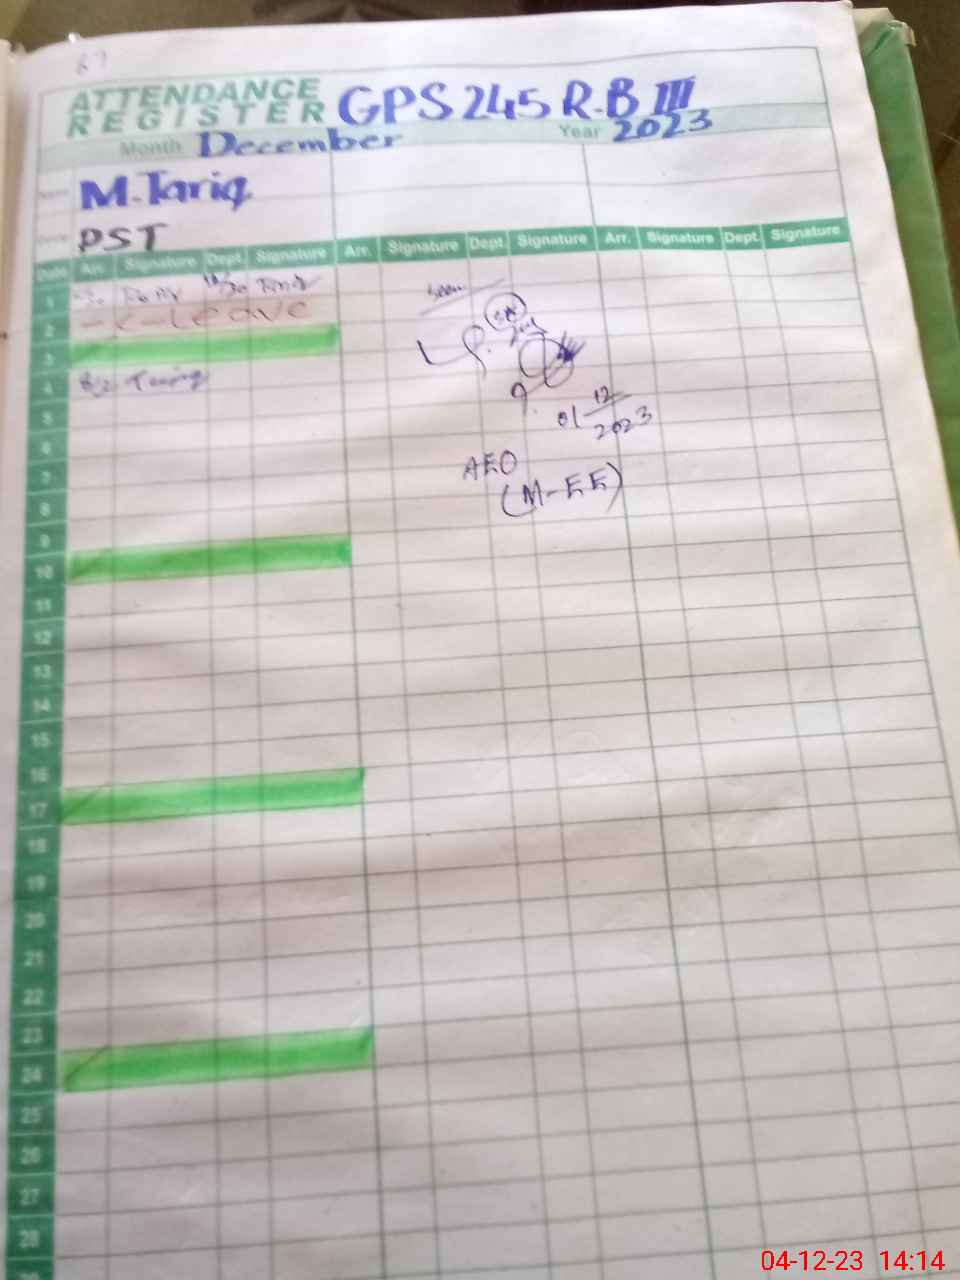 67
ATTENDANCE REGISTER GPS 245 R.B III
Month December Year 2023
Name M.Tariq
PST
Date Arr. Signature Dept. Signature Arr. Signature Dept. Signature Arr. Signature Dept. Signature
1
2 - C-Leave
3
4 Tariq
5
6
7
8
9
10
11
12
13
14
15
16
17
18
19
20
21
22
23
24
25
26
27
28
Seen
01 12 2023
AEO
(M-EE)
04-12-23 14:14